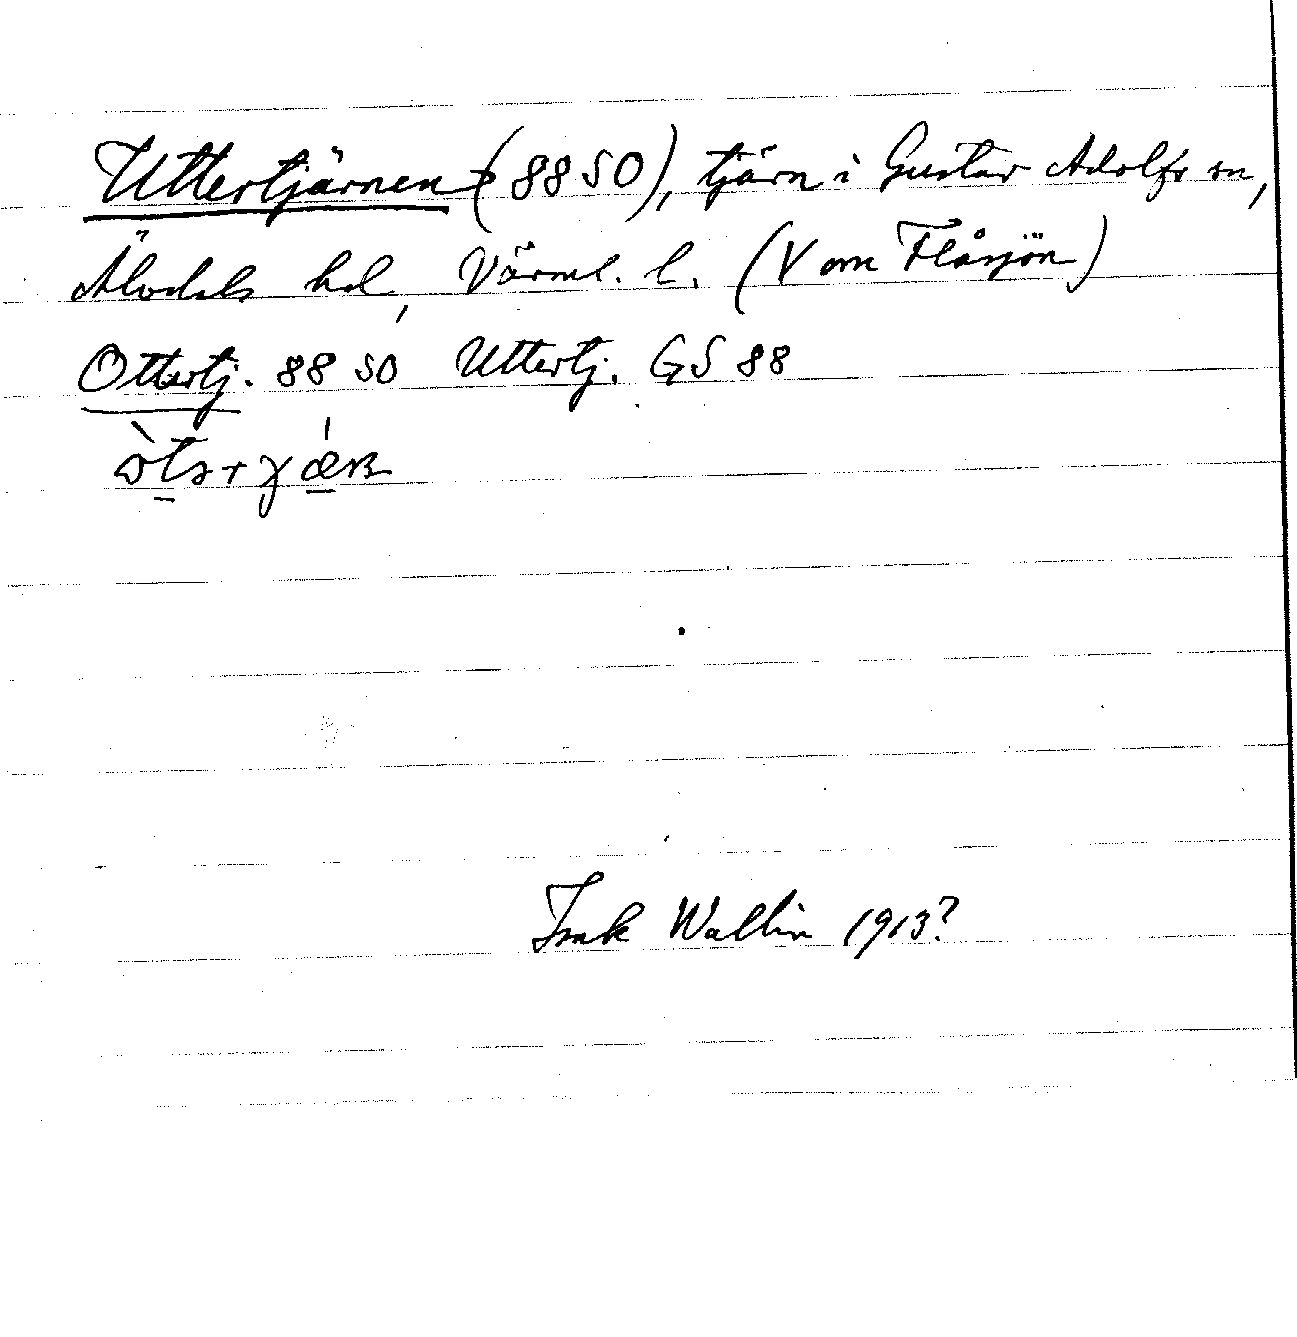 Uttertjärnen (88 SO), tjärn i Gustav Adolfs sn,
Älvdals hd, Värml. l. (V om Flåsjön)
Ottertj. 88 SO Uttertj. GS 88
Isak Wallin 1913?